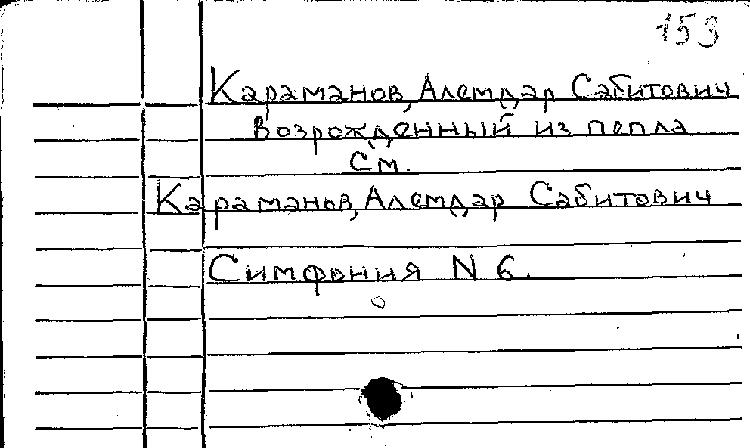 153
Караманов, Алемдар Сабитович
Возрожденный из пепла
см.
Караманов, Алемдар Сабитович
Симфония N 6.